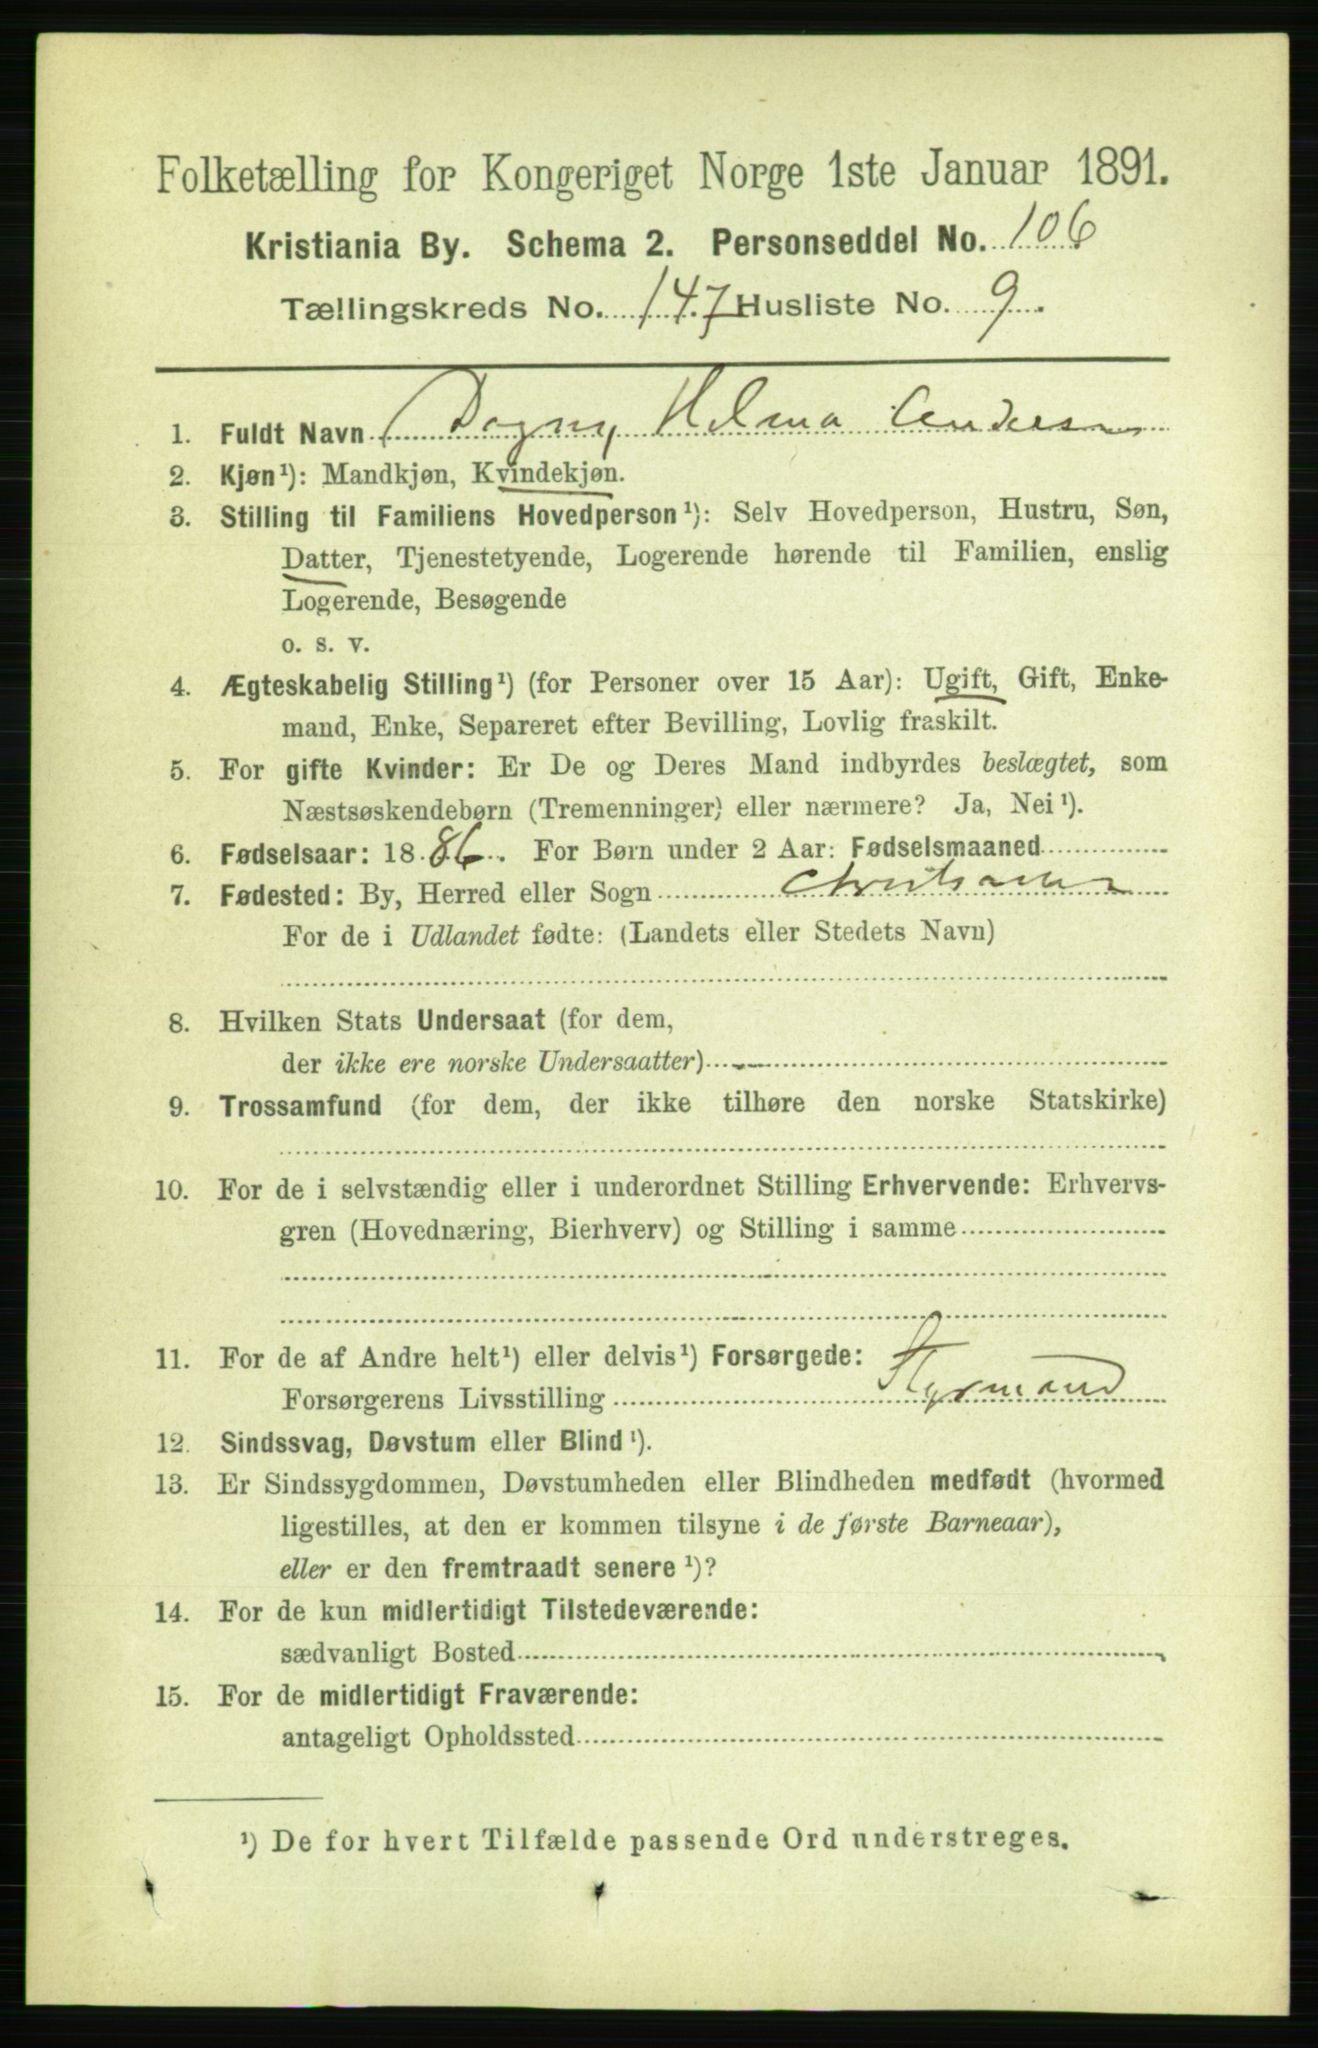 Folketælling for Kongeriget Norge 1ste Januar 1891.
Kristiania By. Schema 2. Personseddel No. 106
Tællingskreds No. 147 Husliste No. 9.
1. Fuldt Navn Dagny Helma Andersen
2. Kjøn¹): Mandkjøn, Kvindekjøn.
3. Stilling til Familiens Hovedperson¹): Selv Hovedperson, Hustru, Søn,
Datter, Tjenestetyende, Logerende hørende til Familien, enslig
Logerende, Besøgende
o. s. v.
4. Ægteskabelig Stilling¹) (for Personer over 15 Aar): Ugift, Gift, Enke-
mand, Enke, Separeret efter Bevilling, Lovlig fraskilt.
5. For gifte Kvinder: Er De og Deres Mand indbyrdes beslægtet, som
Næstsøskendebørn (Tremenninger) eller nærmere? Ja, Nei¹).
6. Fødselsaar: 1886. For Børn under 2 Aar: Fødselsmaaned
7. Fødested: By, Herred eller Sogn Christiania
For de i Udlandet fødte: (Landets eller Stedets Navn)
8. Hvilken Stats Undersaat (for dem,
der ikke ere norske Undersaatter)
9. Trossamfund (for dem, der ikke tilhøre den norske Statskirke)
10. For de i selvstændig eller i underordnet Stilling Erhvervende: Erhvervs-
gren (Hovednæring, Bierhverv) og Stilling i samme
11. For de af Andre helt¹) eller delvis¹) Forsørgede:
Forsørgerens Livsstilling Styrmand
12. Sindssvag, Døvstum eller Blind¹).
13. Er Sindssygdommen, Døvstumheden eller Blindheden medfødt (hvormed
ligestilles, at den er kommen tilsyne i de første Barneaar),
eller er den fremtraadt senere¹)?
14. For de kun midlertidigt Tilstedeværende:
sædvanligt Bosted
15. For de midlertidigt Fraværende:
antageligt Opholdssted
¹) De for hvert Tilfælde passende Ord understreges.